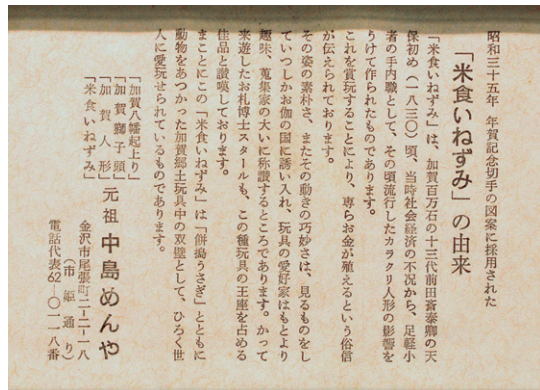 昭和三十五年 年賀記念切手の図案に採用された
「米食いねずみ」の由来
「米食いねずみ」は、加賀百万石の十三代前田斎泰卿の天
保初め(一八三〇)頃、当時社会経済の不況から、足軽小
者の手内職として、その頃流行したカラクリ人形の影響を
うけて作られたものであります。
これを賞玩することにより、専らお金が殖えるという俗信
が伝えられております。
その姿の素朴さ、またその動きの巧妙さは、見るものをし
ていつしかお伽の国に誘い入れ、玩具の愛好家はもとより
趣味、蒐集家の大いに称讃するところであります。かって
来遊したお札博士スタールも、この種玩具の王座を占める
佳品と讃嘆しております。
まことにこの「米食いねずみ」は「餅搗うさぎ」とともに
動物をあつかった加賀郷土玩具中の双璧として、ひろく世
人に愛玩せられているものであります。
「加賀八幡起上り」
「加賀獅子頭」
「加賀人形」
「米食いねずみ」
元祖 中島めんや
金沢市尾張町二ー二ー一八
(市姫通り)
電話代表62ー〇一一八番